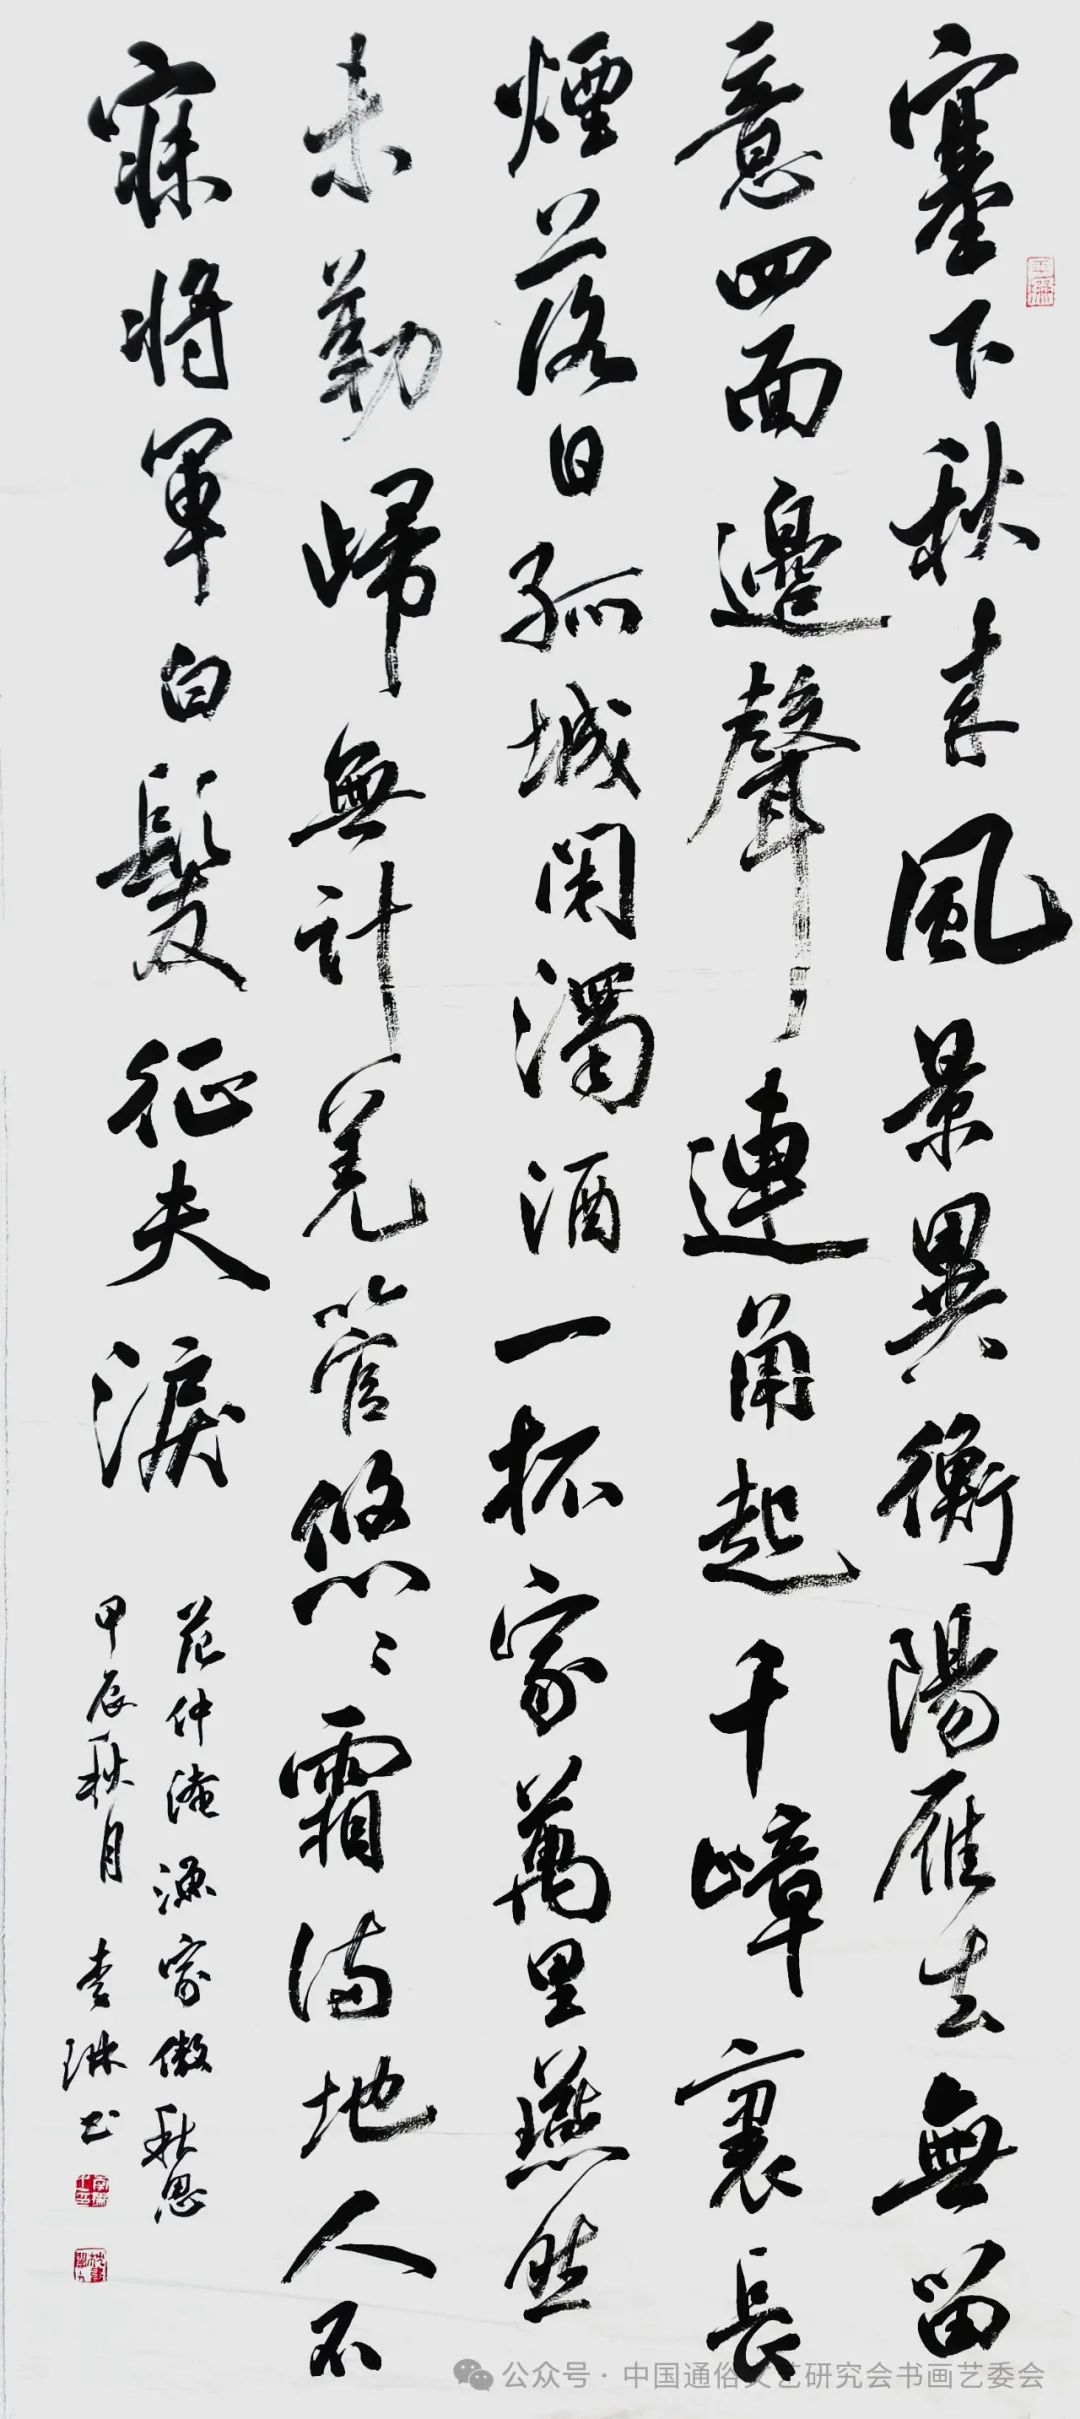 塞下秋来風景異衡陽雁去無留
意四面邊聲連角起千嶂裏長
煙落日孤城閉濁酒一杯家萬里燕然
未勒歸無計羌管悠々霜滿地人不
寐將軍白髮征夫淚
范仲淹漁家傲秋思
甲辰秋月 李琳书
公众号·中国通俗文艺研究会书画艺委会